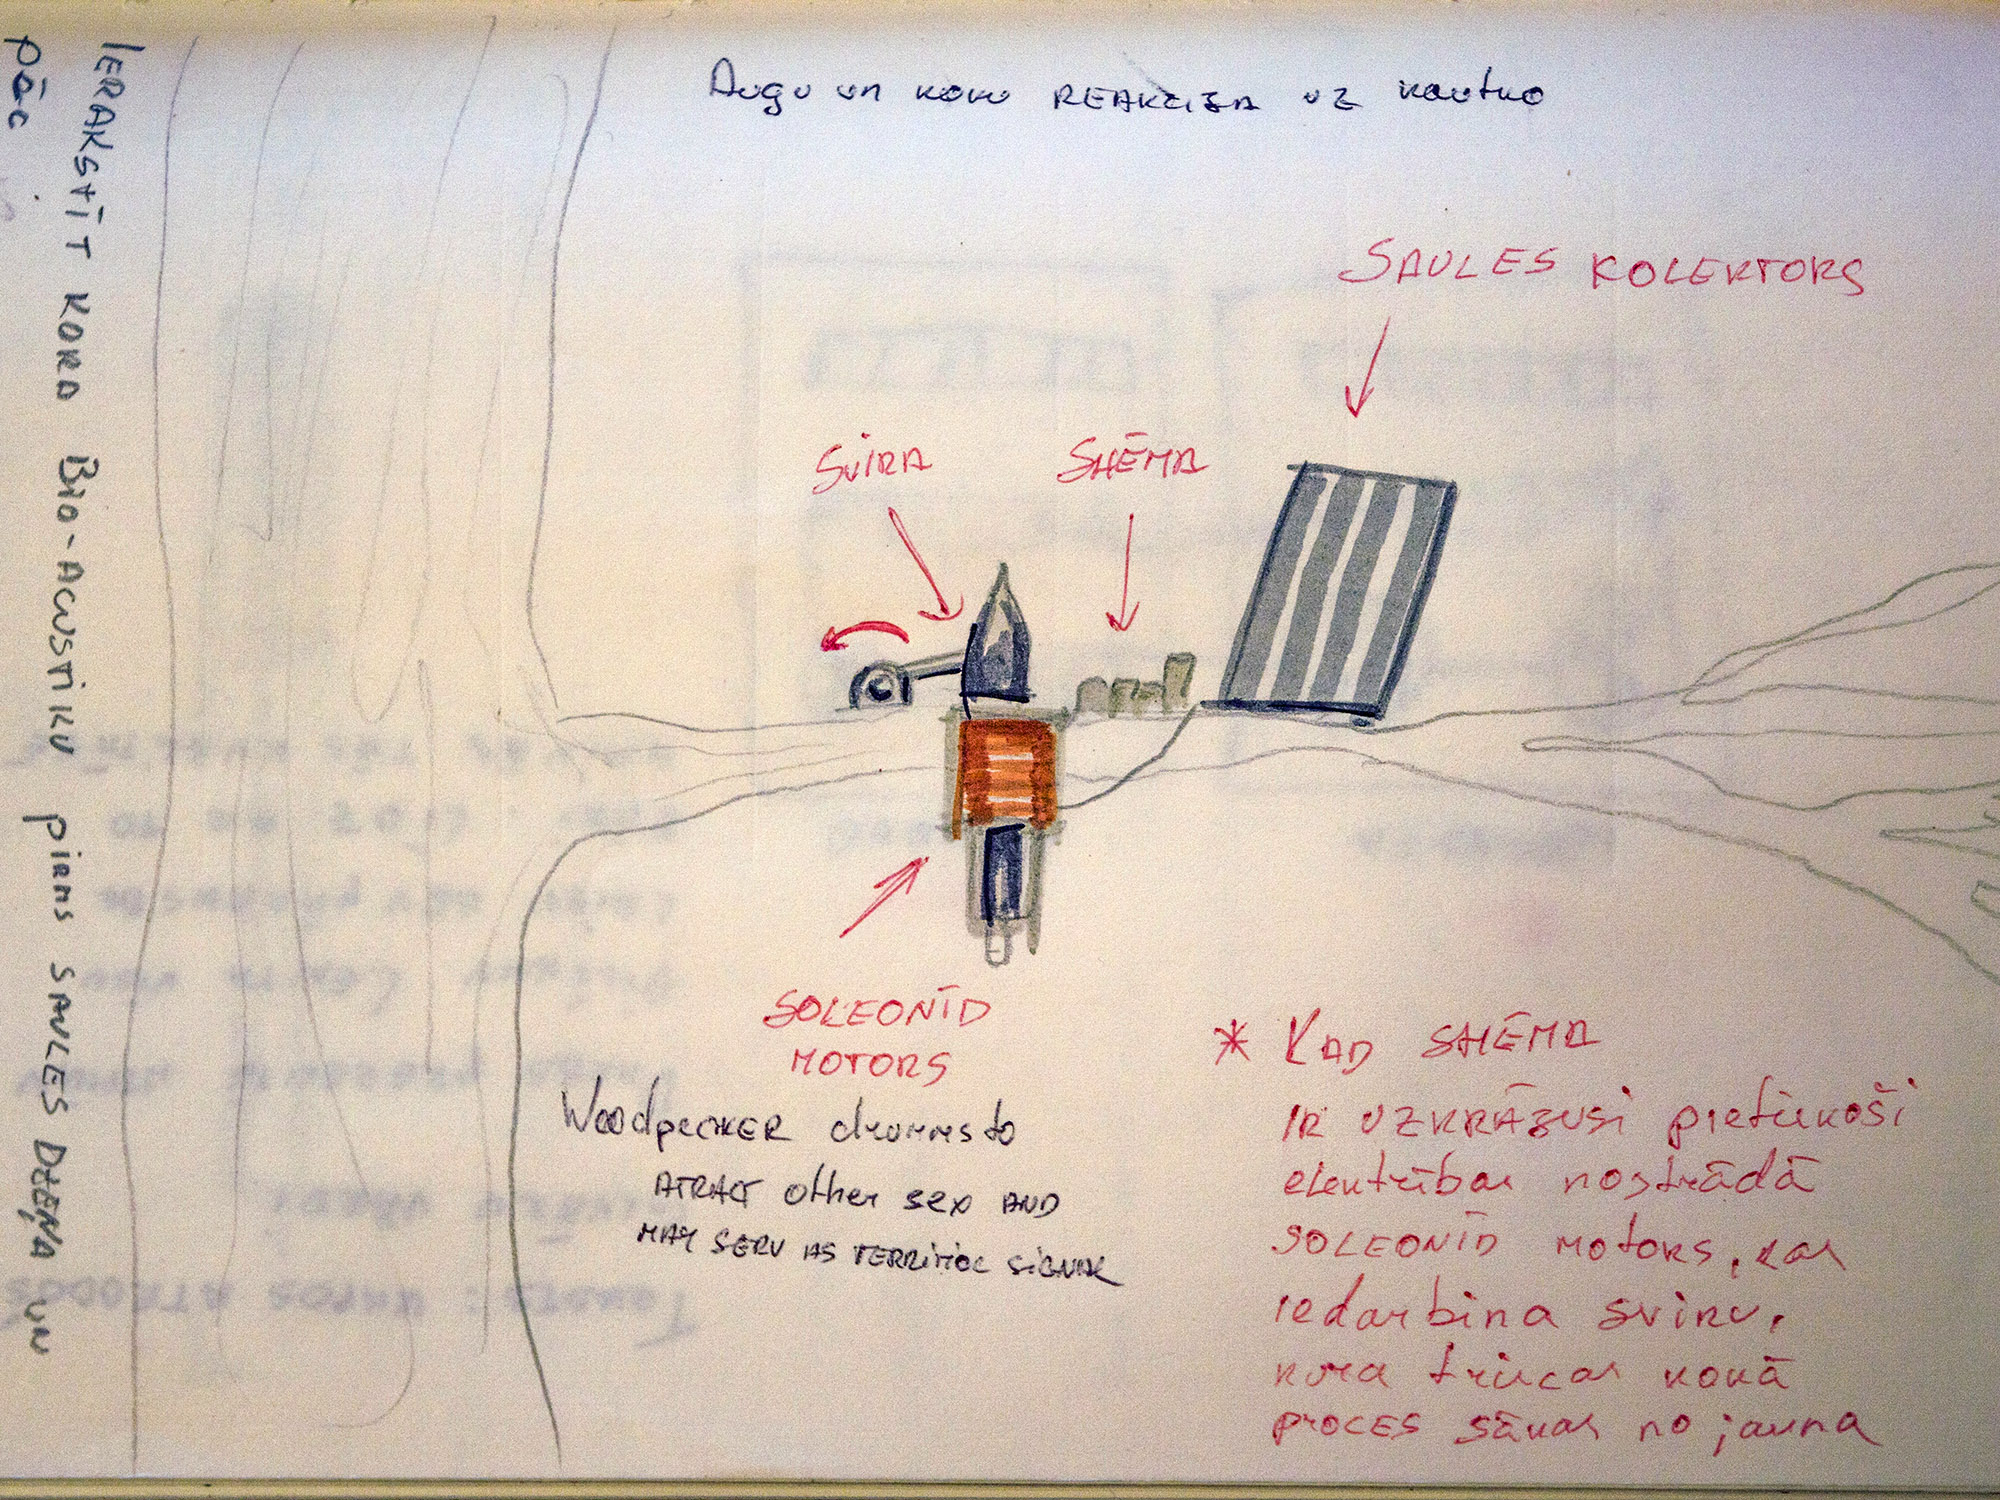 Augu un koku REAKCIJA uz kautko
SAULES KOLEKTORS
SVIRA
SHĒMA
SOLEONĪD
MOTORS
Woodpecker drumms to
ATRACT other sex AND
MAY SERV AS TERRITOC SIGNAL
* KAD SHĒMA
IR UZKRĀJUSI pietiekoši
elektrības nostrādā
SOLEONĪD MOTORS, kas
iedarbina sviru,
kura triecas kokā
PROCES sākas no jauna
IERAKSTĪT KOKA BIO-ACUSTIKU pirms SAULES DIENA un
pēc